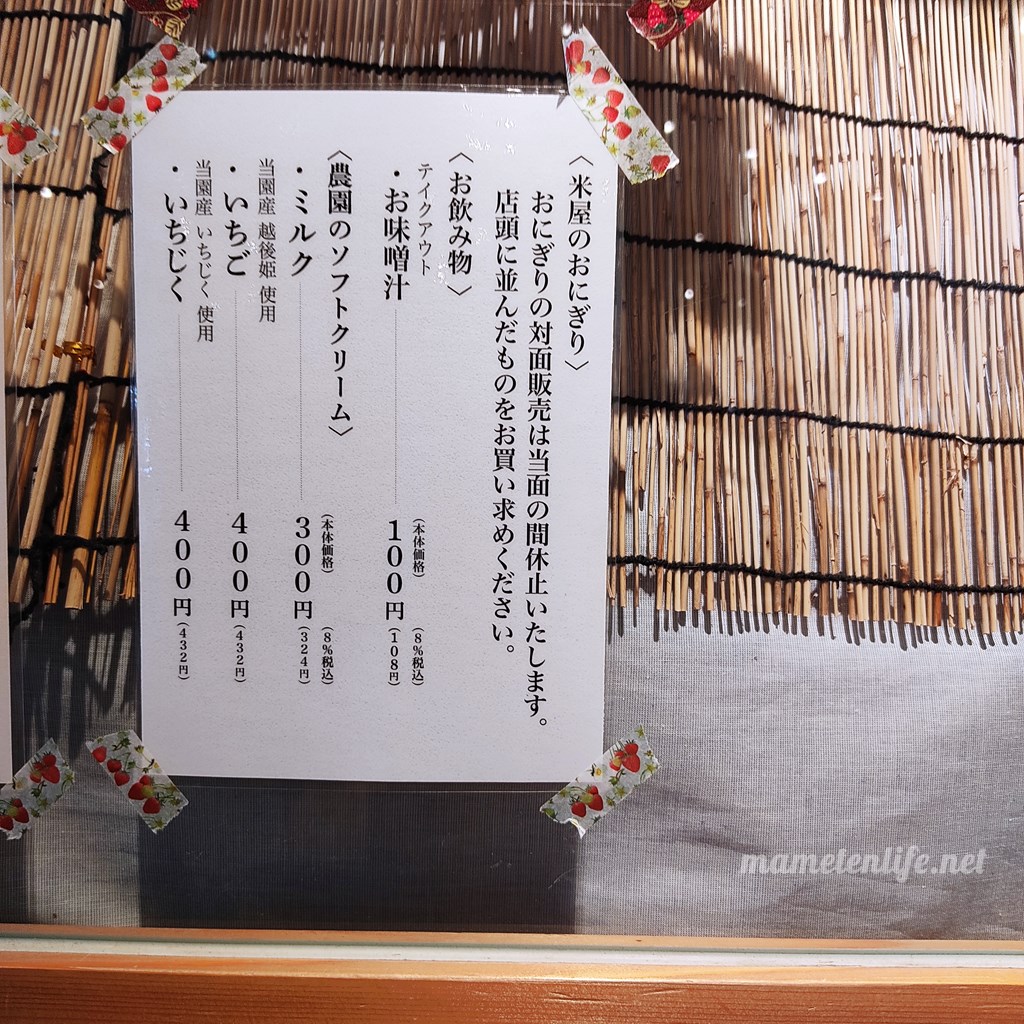 〈米屋のおにぎり〉
おにぎりの対面販売は当面の間休止いたします。
店頭に並んだものをお買い求めください。
〈お飲み物〉
テイクアウト (本体価格) (8%税込)
・お味噌汁 100円 (108円)
〈農園のソフトクリーム〉
(本体価格) (8%税込)
・ミルク 300円 (324円)
当園産 越後姫 使用
・いちご 400円 (432円)
当園産 いちじく 使用
・いちじく 400円 (432円)
mametenlife.net